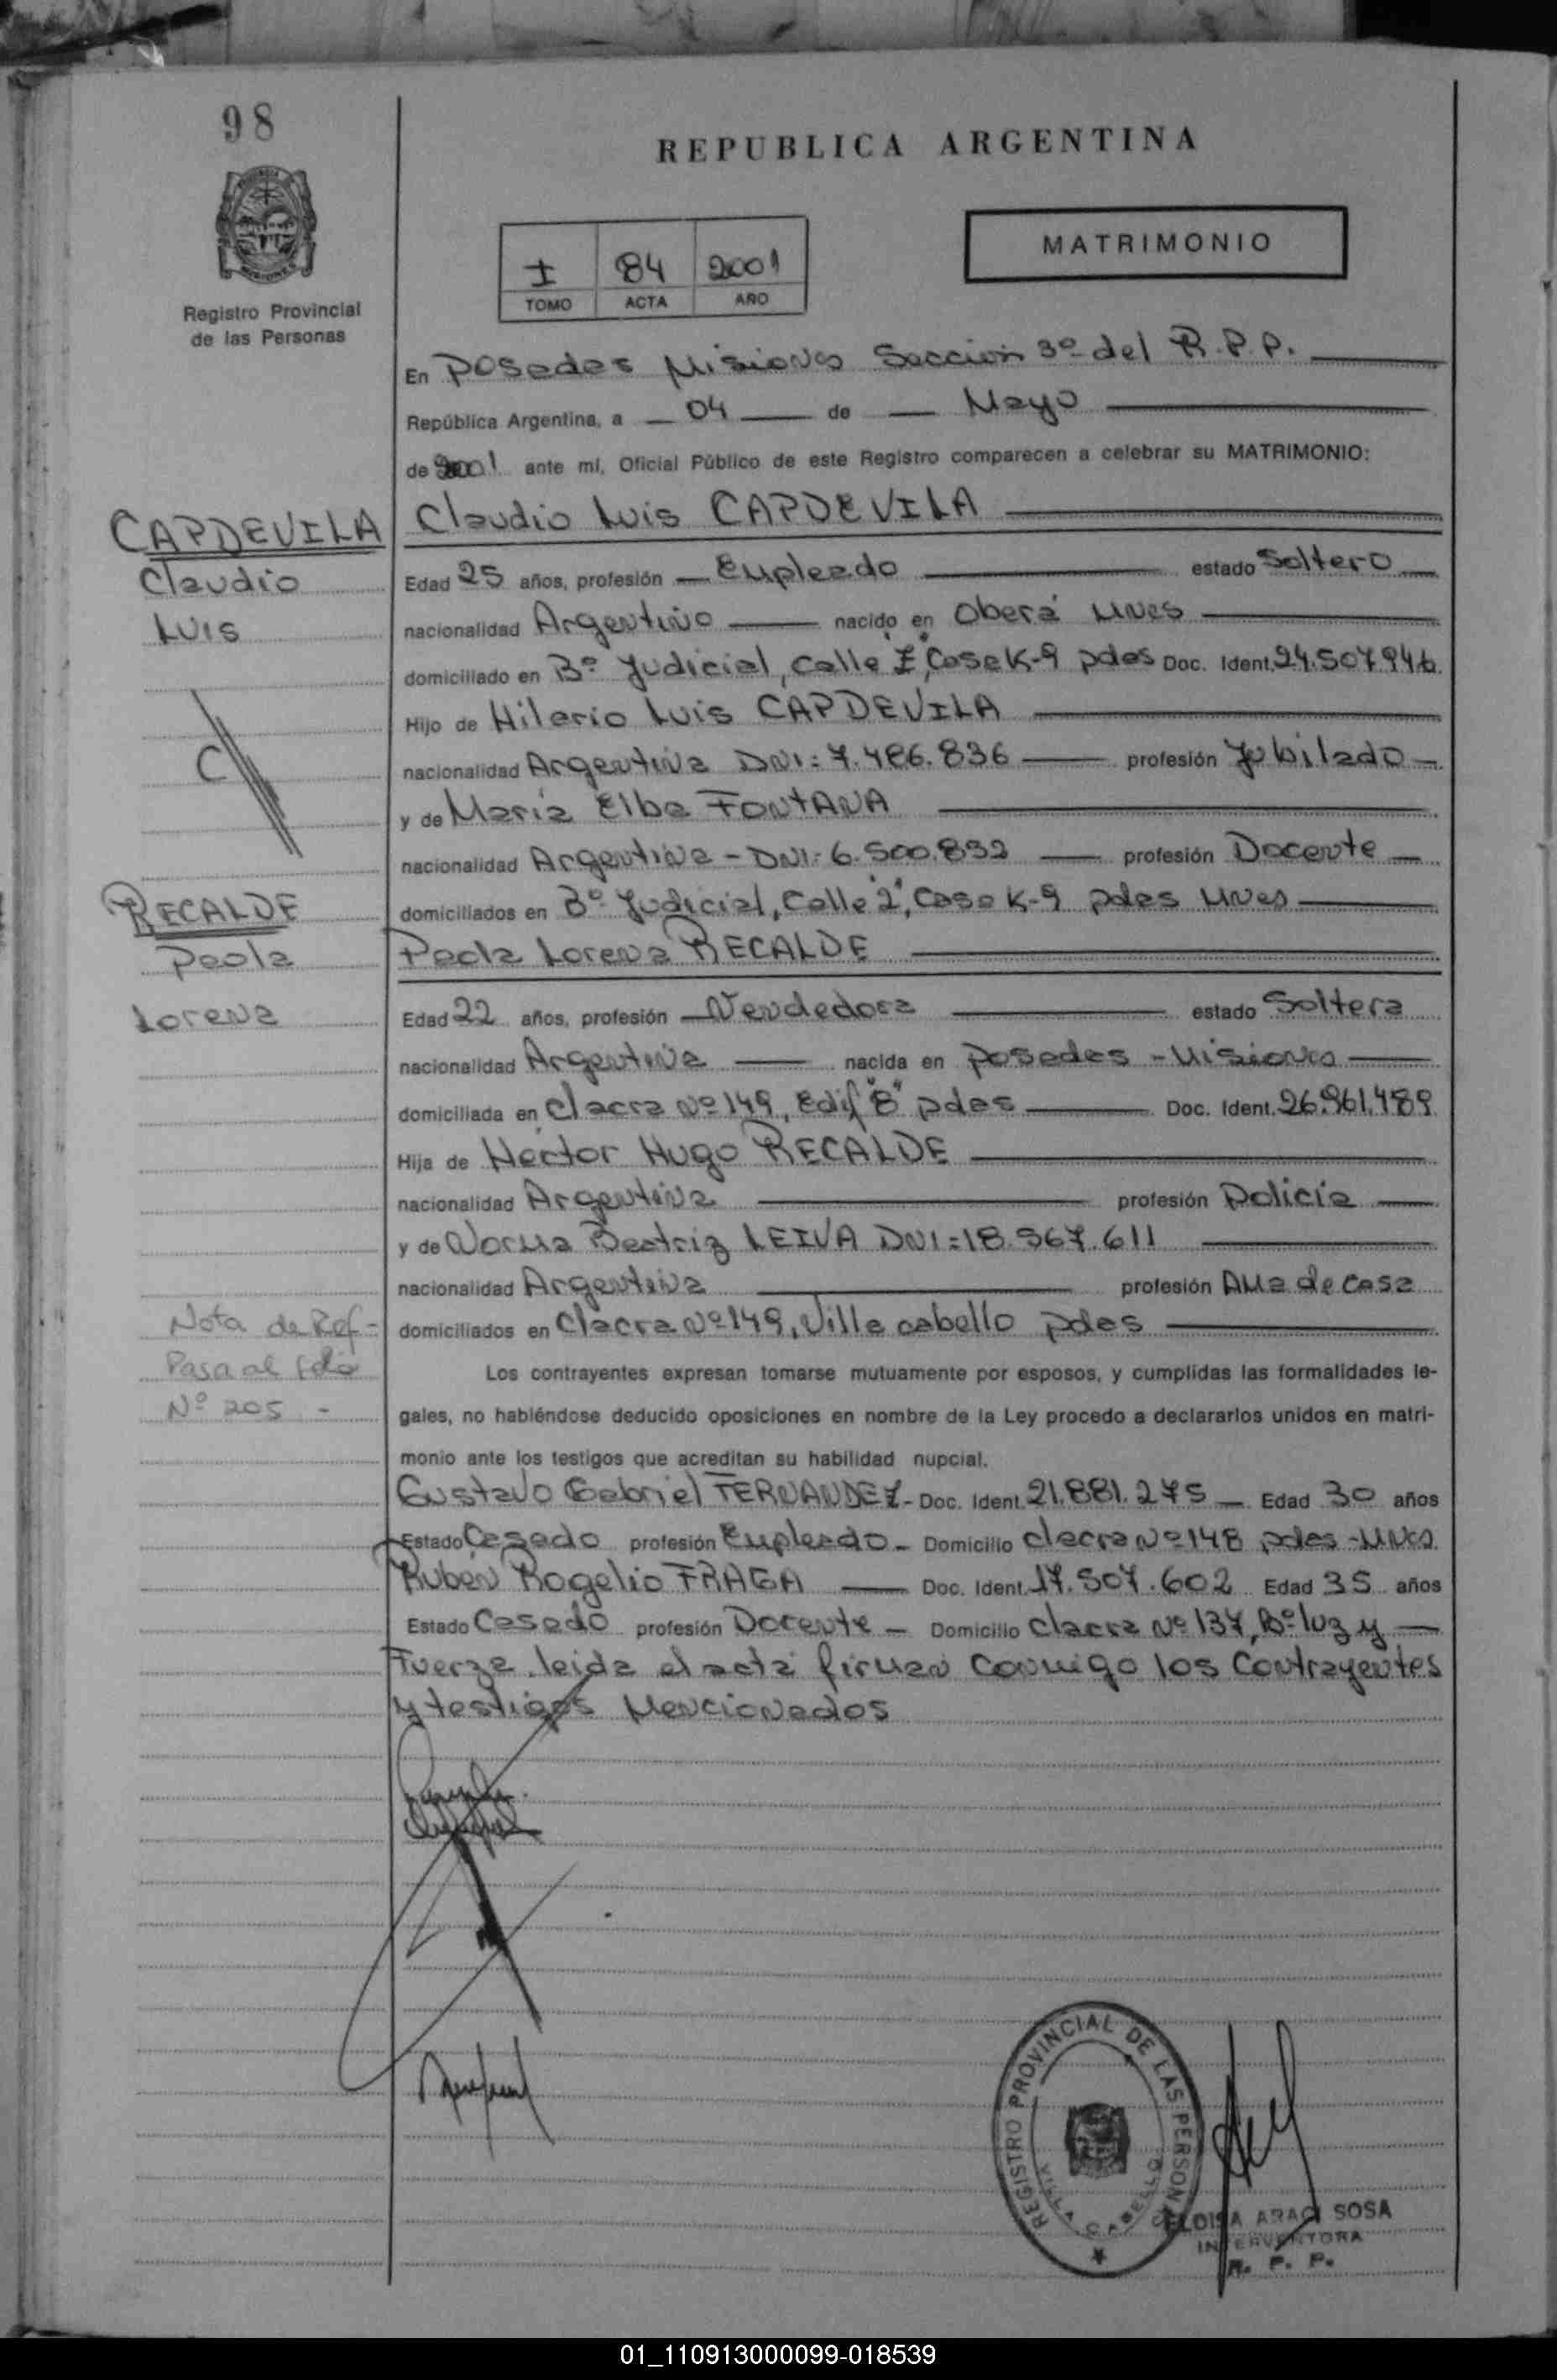 98
REPUBLICA ARGENTINA
MATRIMONIO
I 84 2001
TOMO ACTA AÑO
Registro Provincial
de las Personas
En Posadas Misiones Sección 3º del R.P.P.
República Argentina, a 04 de Mayo
de 2001 ante mí, Oficial Público de este Registro comparecen a celebrar su MATRIMONIO:
CAPDEVILA
Claudio
Luis
C
Claudio Luis CAPDEVILA
Edad 25 años, profesión Empleado estado Soltero
nacionalidad Argentino nacido en Oberá Mnes
domiciliado en Bº Judicial, Calle "2", Casa K-9 pdas Doc. Ident. 24.507.946
Hijo de Hilario Luis CAPDEVILA
nacionalidad Argentina DNI: 7.486.836 profesión Jubilado
y de María Elba FONTANA
nacionalidad Argentina - DNI: 6.500.832 profesión Docente
domiciliados en Bº Judicial, Calle "2", Casa K-9 pdas Mnes
RECALDE
Paola
Lorena
Paola Lorena RECALDE
Edad 22 años, profesión Vendedora estado Soltera
nacionalidad Argentina nacida en Posadas - Misiones
domiciliada en Chacra Nº 149, Edif "B" pdas Doc. Ident. 26.961.489
Hija de Hector Hugo RECALDE
nacionalidad Argentina profesión Policía
y de Norma Beatriz LEIVA DNI: 18.567.611
nacionalidad Argentina profesión Ama de casa
domiciliados en Chacra Nº 149, Villa cabello pdas
Nota de Ref-
Pasa al folio
Nº 205 -
Los contrayentes expresan tomarse mutuamente por esposos, y cumplidas las formalidades le-
gales, no habiéndose deducido oposiciones en nombre de la Ley procedo a declararlos unidos en matri-
monio ante los testigos que acreditan su habilidad nupcial.
Gustavo Gabriel FERNANDEZ - Doc. Ident. 21.881.275 Edad 30 años
Estado Casado profesión Empleado - Domicilio chacra Nº 148 pdas - Mnes
Ruben Rogelio FRAGA Doc. Ident. 17.507.602 Edad 35 años
Estado Casado profesión Docente - Domicilio chacra Nº 137, Bº luz y
Fuerza. leída el acta firman conmigo los contrayentes
y testigos Mencionados
REGISTRO PROVINCIAL DE LAS PERSONAS
VILLA CABELLO
ELOISA ARACI SOSA
INTERVENTORA
R. P. P.
01_110913000099-018539